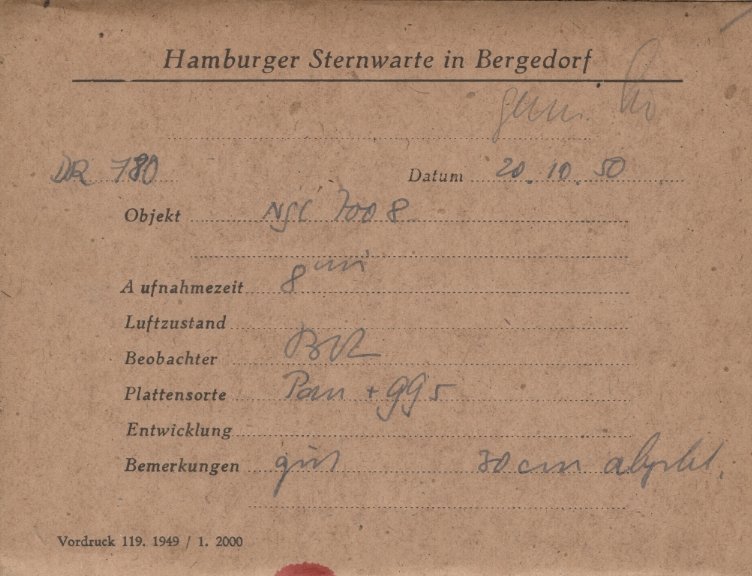 Hamburger Sternwarte in Bergedorf
DR 780 Datum 20.10.50
Objekt NGC 7008
Aufnahmezeit 8 min
Luftzustand
Beobachter
Plattensorte Pan + GG5
Entwicklung
Bemerkungen gut 30 cm
Vordruck 119. 1949 / 1. 2000